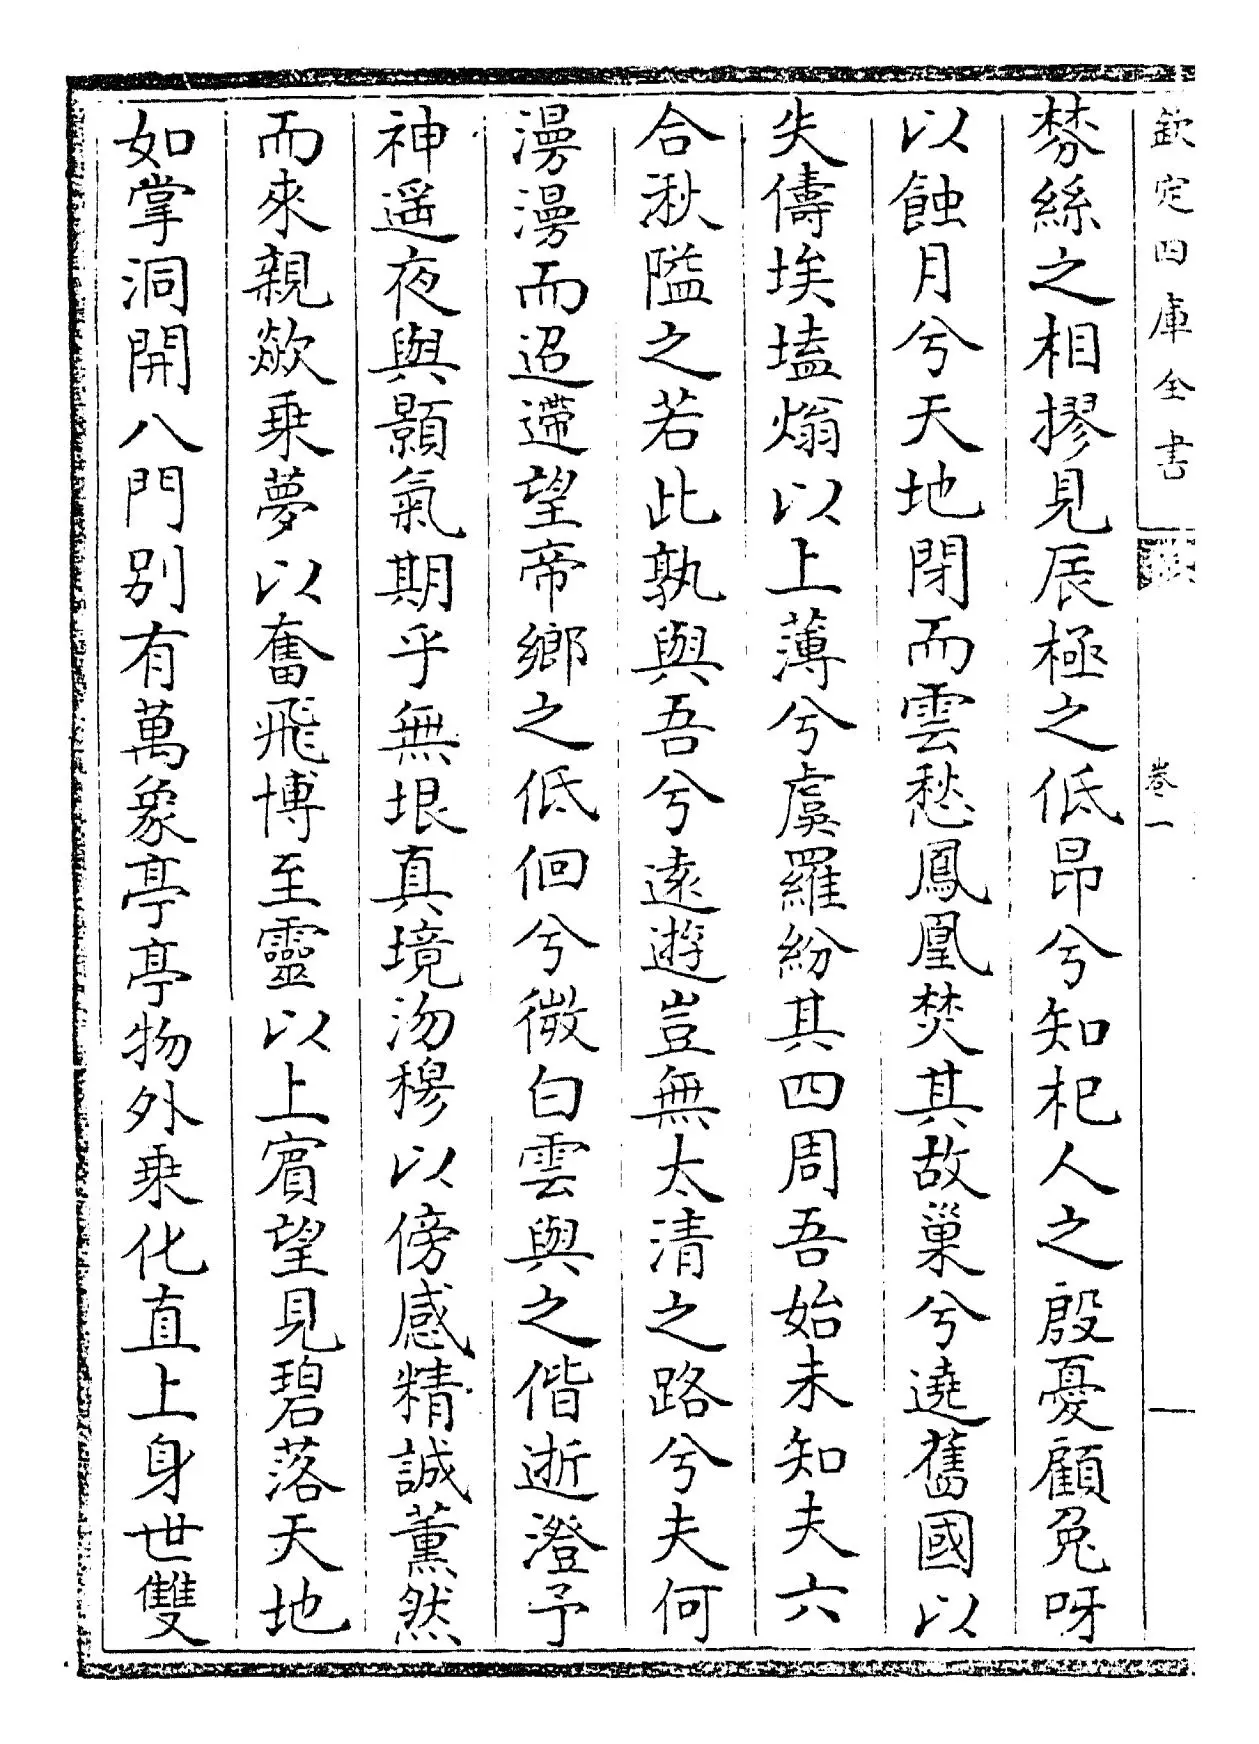 欽定四庫全書
卷一
棼絲之相摎見辰極之低昂兮知杞人之殷憂顧兔呀
以蝕月兮天地閉而雲愁鳳凰焚其故巢兮遶舊國以
失儔埃壒熻以上薄兮虞羅紛其四周吾始未知夫六
合湫隘之若此孰與吾兮遠遊豈無太清之路兮夫何
漫漫而迢遰望帝鄉之低佪兮微白雲與之偕逝澄予
神遥夜與顥氣期乎無垠真境沕穆以傍感精誠薰然
而來親歘乗夢以奮飛博至靈以上賓望見碧落天地
如掌洞開八門別有萬象亭亭物外乗化直上身世雙